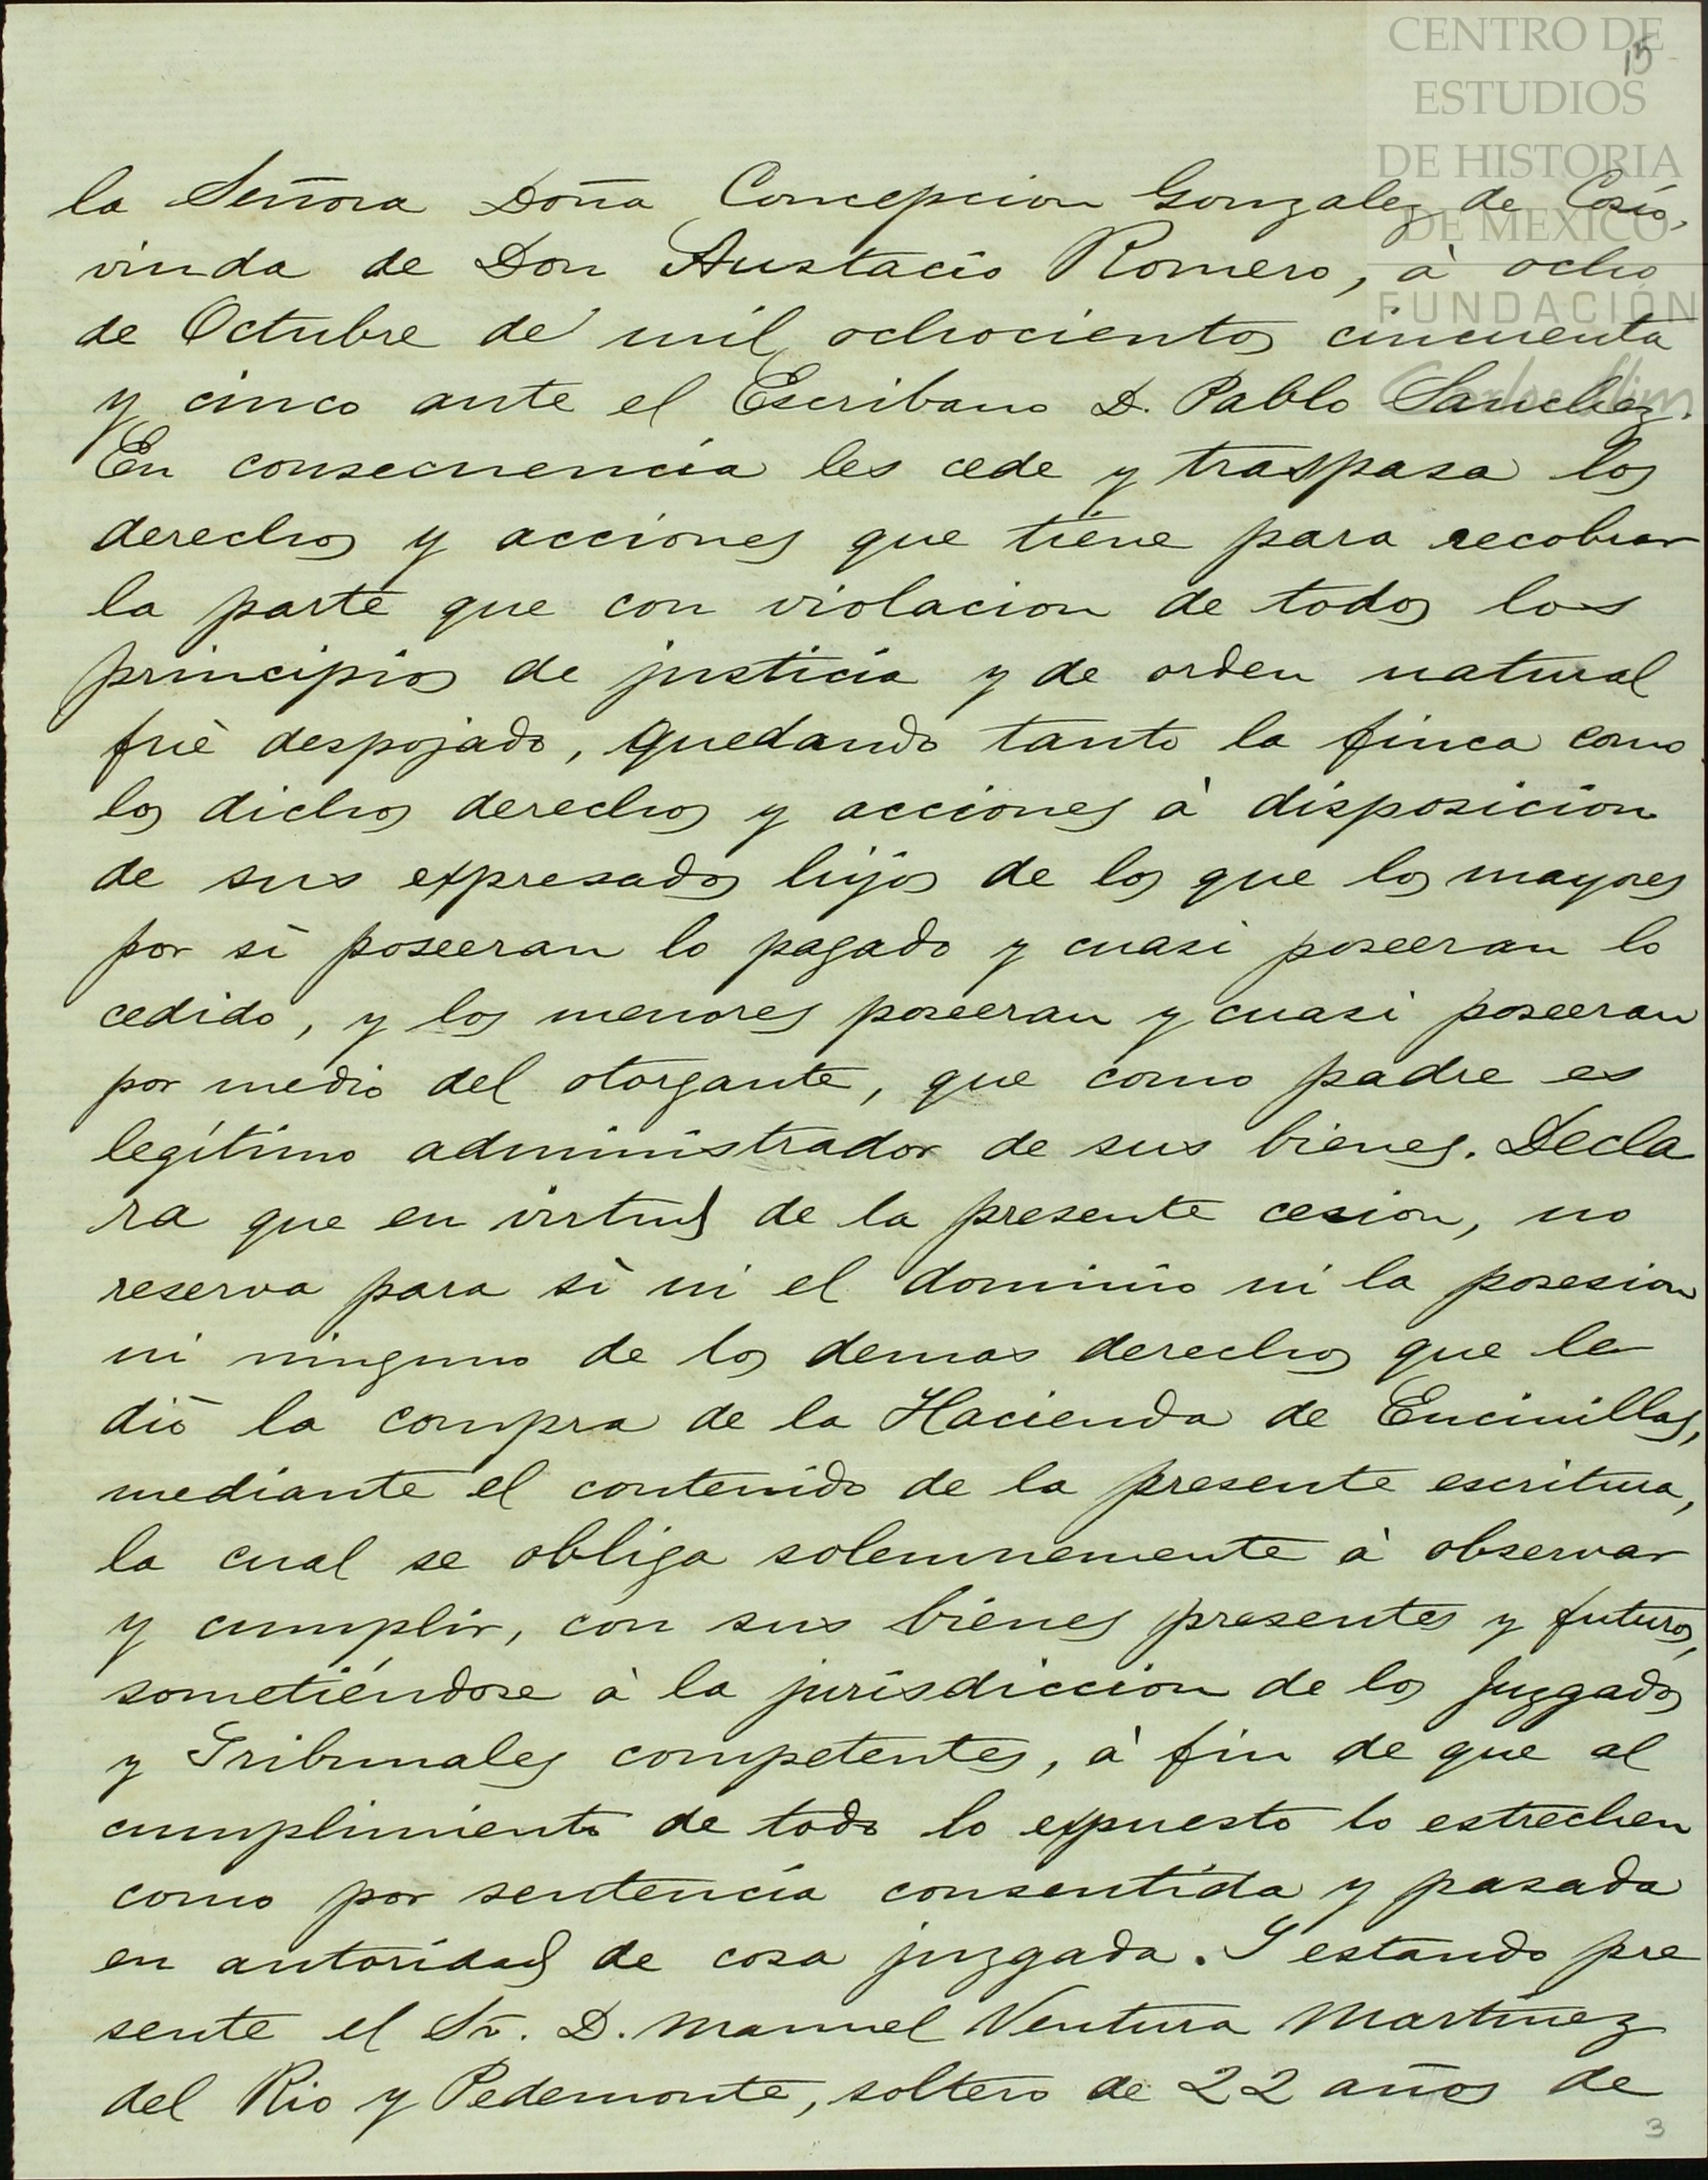 CENTRO DE
ESTUDIOS
DE HISTORIA
DE MEXICO
FUNDACIÓN
Carlos Slim
15
la Señora Doña Concepcion Gonzalez de Cosío,
viuda de Don Austacio Romero, à ocho
de Octubre de mil ochocientos cincuenta
y cinco ante el Escribano D. Pablo Sanchez.
En consecuencia les cede y traspasa los
derechos y acciones que tiene para recobrar
la parte que con violacion de todos los
principios de justicia y de orden natural
fuè despojado, quedando tanto la finca como
los dichos derechos y acciones à disposicion
de sus expresados hijos de los que los mayores
por sì poseeran lo pagado y cuasi poseeran lo
cedido, y los menores poseeran y cuasi poseeran
por medio del otorgante, que como padre es
legítimo administrador de sus bienes. Decla
ra que en virtud de la presente cesion, no
reserva para sì ni el dominio ni la posesion
ni ninguno de los demas derechos que le
diò la compra de la Hacienda de Encinillas,
mediante el contenido de la presente escritura,
la cual se obliga solemnemente à observar
y cumplir, con sus bienes presentes y futuros,
sometiéndose à la jurisdiccion de los Juzgados
y Tribunales competentes, à fin de que al
cumplimiento de todo lo expuesto lo estrechen
como por sentencia consentida y pasada
en autoridad de cosa juzgada. Y estando pre
sente el Sr. D. Manuel Ventura Martinez
del Rio y Pedemonte, soltero de 22 años de
3